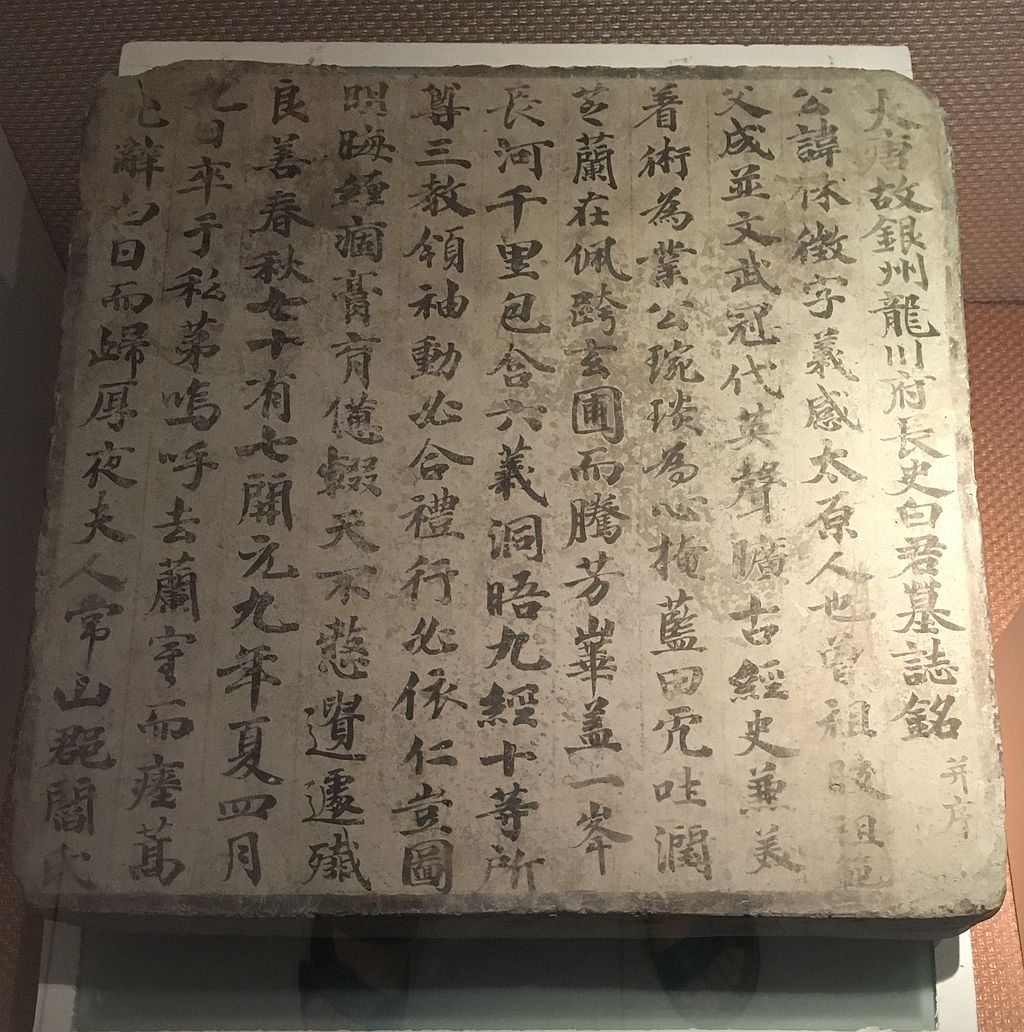 大唐故銀州龍川府長史白君墓誌銘 并序
公諱休徵字義感太原人也曾祖陵祖
父成並文武冠代英聲曠古經史兼美
著術為業公琬琰為心掩藍田而吐潤
芝蘭在佩跨玄圃而騰芳崋盖一岑
長河千里包含六義洞晤九經十等所
尊三教領袖動必合禮行必依仁豈圖
明晦鍾痼膏肓僊輟天不憖遺遽殲
良善春秋七十有七開元九年夏四月
九日卒于私苐嗚呼去蘭室而瘞蒿
辭白日而歸厚夜夫人常山郡閻氏